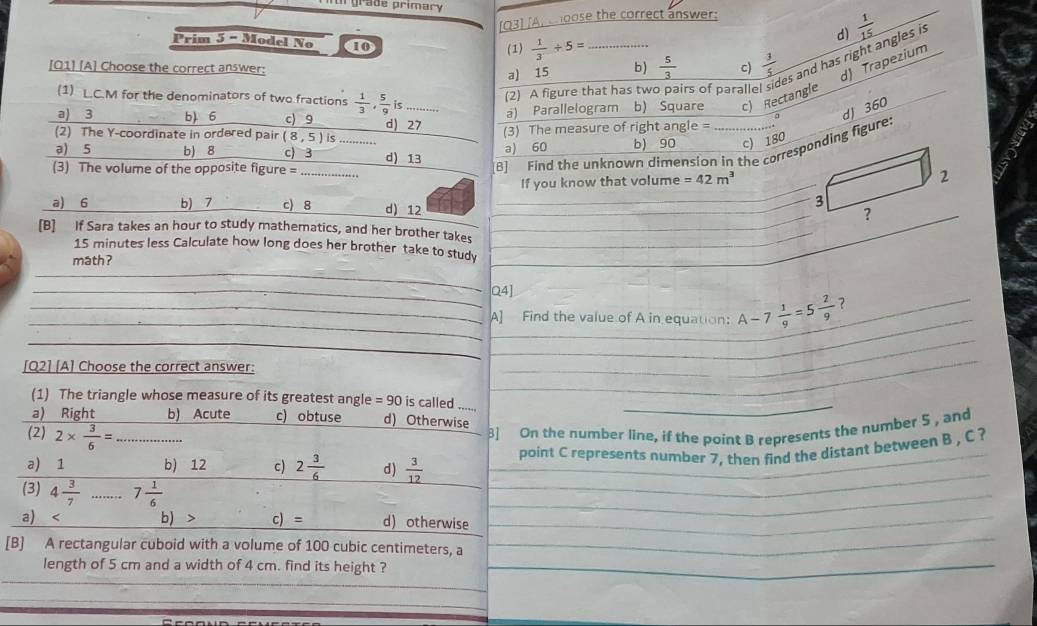 grade primary
Prim 5 - Model No 10
[Q1] [A] Choose the correct answer:
(1) L.C.M for the denominators of two fractions 1/3 , 5/9 is .........
a) 3 b) 6 c) 9 d) 27
(2) The Y-coordinate in ordered pair ( 8 , 5 ) is ..........
a) 5 b) 8 c) 3 d) 13
(3) The volume of the opposite figure = ................
a) 6 b) 7 c) 8 d) 12
[B] If Sara takes an hour to study mathematics, and her brother takes
15 minutes less Calculate how long does her brother take to study
math?
[Q2] [A] Choose the correct answer:
(1) The triangle whose measure of its greatest angle = 90 is called ......
a) Right b) Acute c) obtuse d) Otherwise
(2) 2 × 3/6 = .................
a) 1 b) 12 c) 2 3/6 d) 3/12
(3) 4 3/7 ........ 7 1/6
a) < b) > c) = d) otherwise
[B] A rectangular cuboid with a volume of 100 cubic centimeters, a
length of 5 cm and a width of 4 cm. find its height ?
[Q3] [A] the correct answer:
(1) 1/3 ÷ 5 = ................
a) 15 b) 5/3 c) 3/5 d) 1/15
(2) A figure that has two pairs of parallel sides and has right angles is
a) Parallelogram b) Square c) Rectangle d) Trapezium
(3) The measure of right angle = ................°
a) 60 b) 90 c) 180 d) 360
[B] Find the unknown dimension in the corresponding figure:
If you know that volume = 42 m³
2
3
?
Q4]
A] Find the value of A in equation: A – 7 1/9 = 5 2/9 ?
B] On the number line, if the point B represents the number 5 , and
point C represents number 7, then find the distant between B , C ?